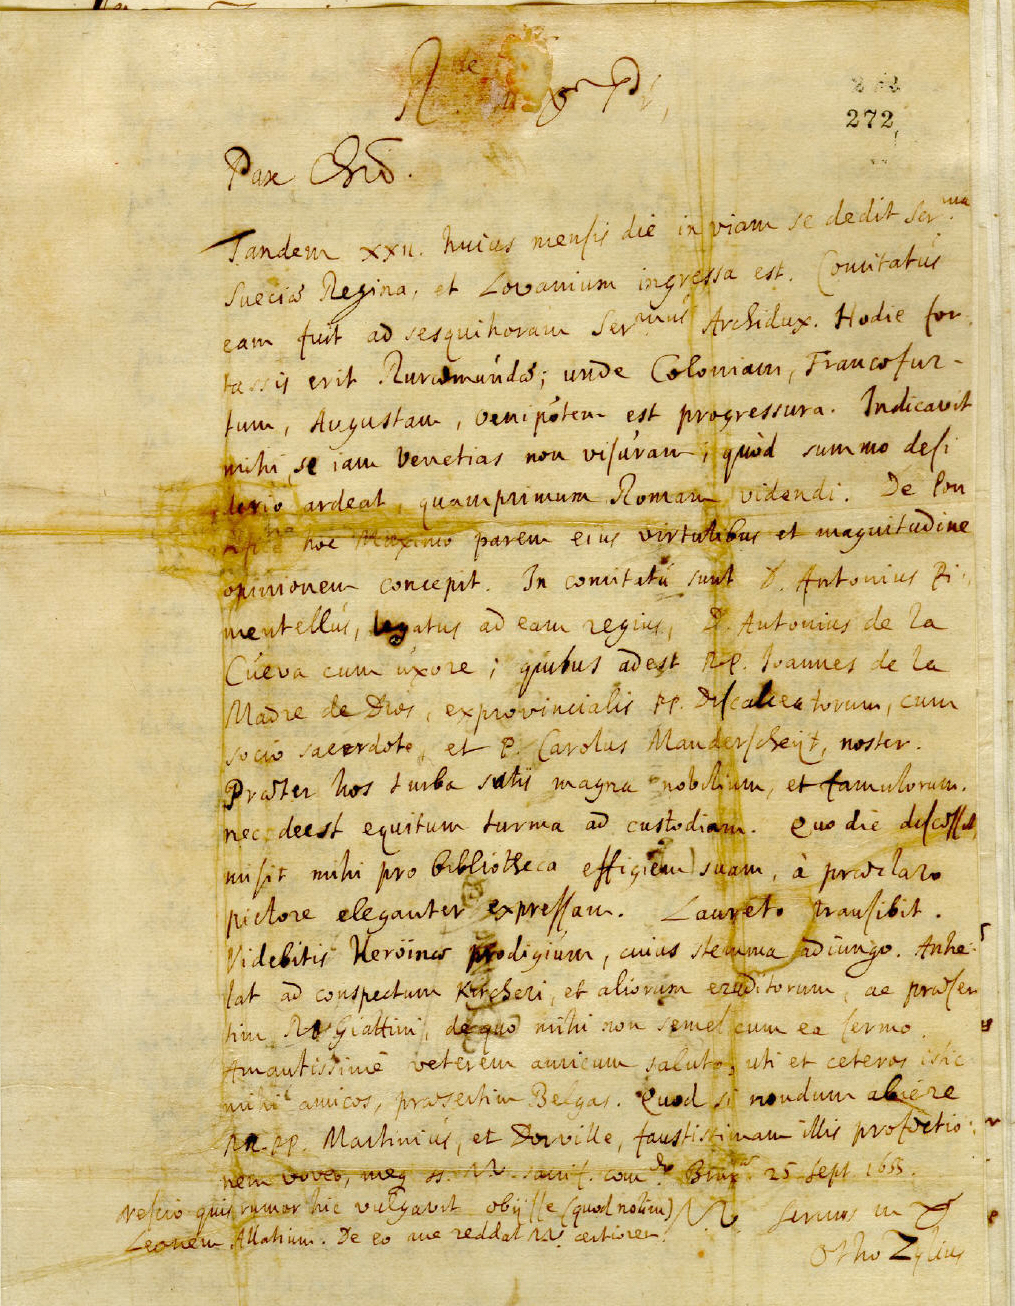 272
Pax Chrī.
Tandem xxii. huius mensis die in viam se dedit Ser.ma
Sueciæ Regina, et Lovanium ingressa est. Comitatus
eam fuit ad sesquihoram Ser.mus Archidux. Hodie for-
tassis erit Ruræmundæ; unde Coloniam, Francofur-
tum, Augustam, Oenipótem est progressura. Indicavit
mihi se iam Venetias non visuram; quòd summo desi
derio ardeat, quamprimum Romam videndi. De Pon
hoc Maximo parem eius virtutibus et magnitudine
opinionem concepit. In comitatu sunt D. Antonius Pi-
mentellus, legatus ad eam regius, D. Antonius de la
Cueva cum uxore; quibus adest R.P. Ioannes de la
Madre de Dios, exprovincialis PP. Discalceatorum, cum
socio sacerdote, et P. Carolus Manderscheijt, noster.
Præter hos turba satis magna nobilium, et famulorum.
nec deest equitum turma ad custodiam. Quo die discessit
misit mihi pro bibliotheca effigiem suam, à præclaro
pictore eleganter expressam. Laureto transibit.
Videbitis Heroinæ prodigium, cuius stemma adiungo. Anhe-
lat ad conspectum Kircheri, et aliorum eruditorum, ac præser
tim R.P. Giattini, de quo mihi non semel cum ea sermo.
Amantissimè veterem amicum saluto, uti et ceteros istic
mihi amicos, præsertim Belgas. Quod si nondum abiere
RR. PP. Martinius, et Dorville, faustissimam illis profectio-
nem voveo, meq. ss. Ræ. Væ. com.do Brux. 25 Sept. 1655.
nescio quis rumor hic vulgavit obijsse (quod nolim) Ræ. Væ. servus in Xº
Leonem Allatium. De eo me reddat Rª.Vª. certiorem.
Otho Zylius